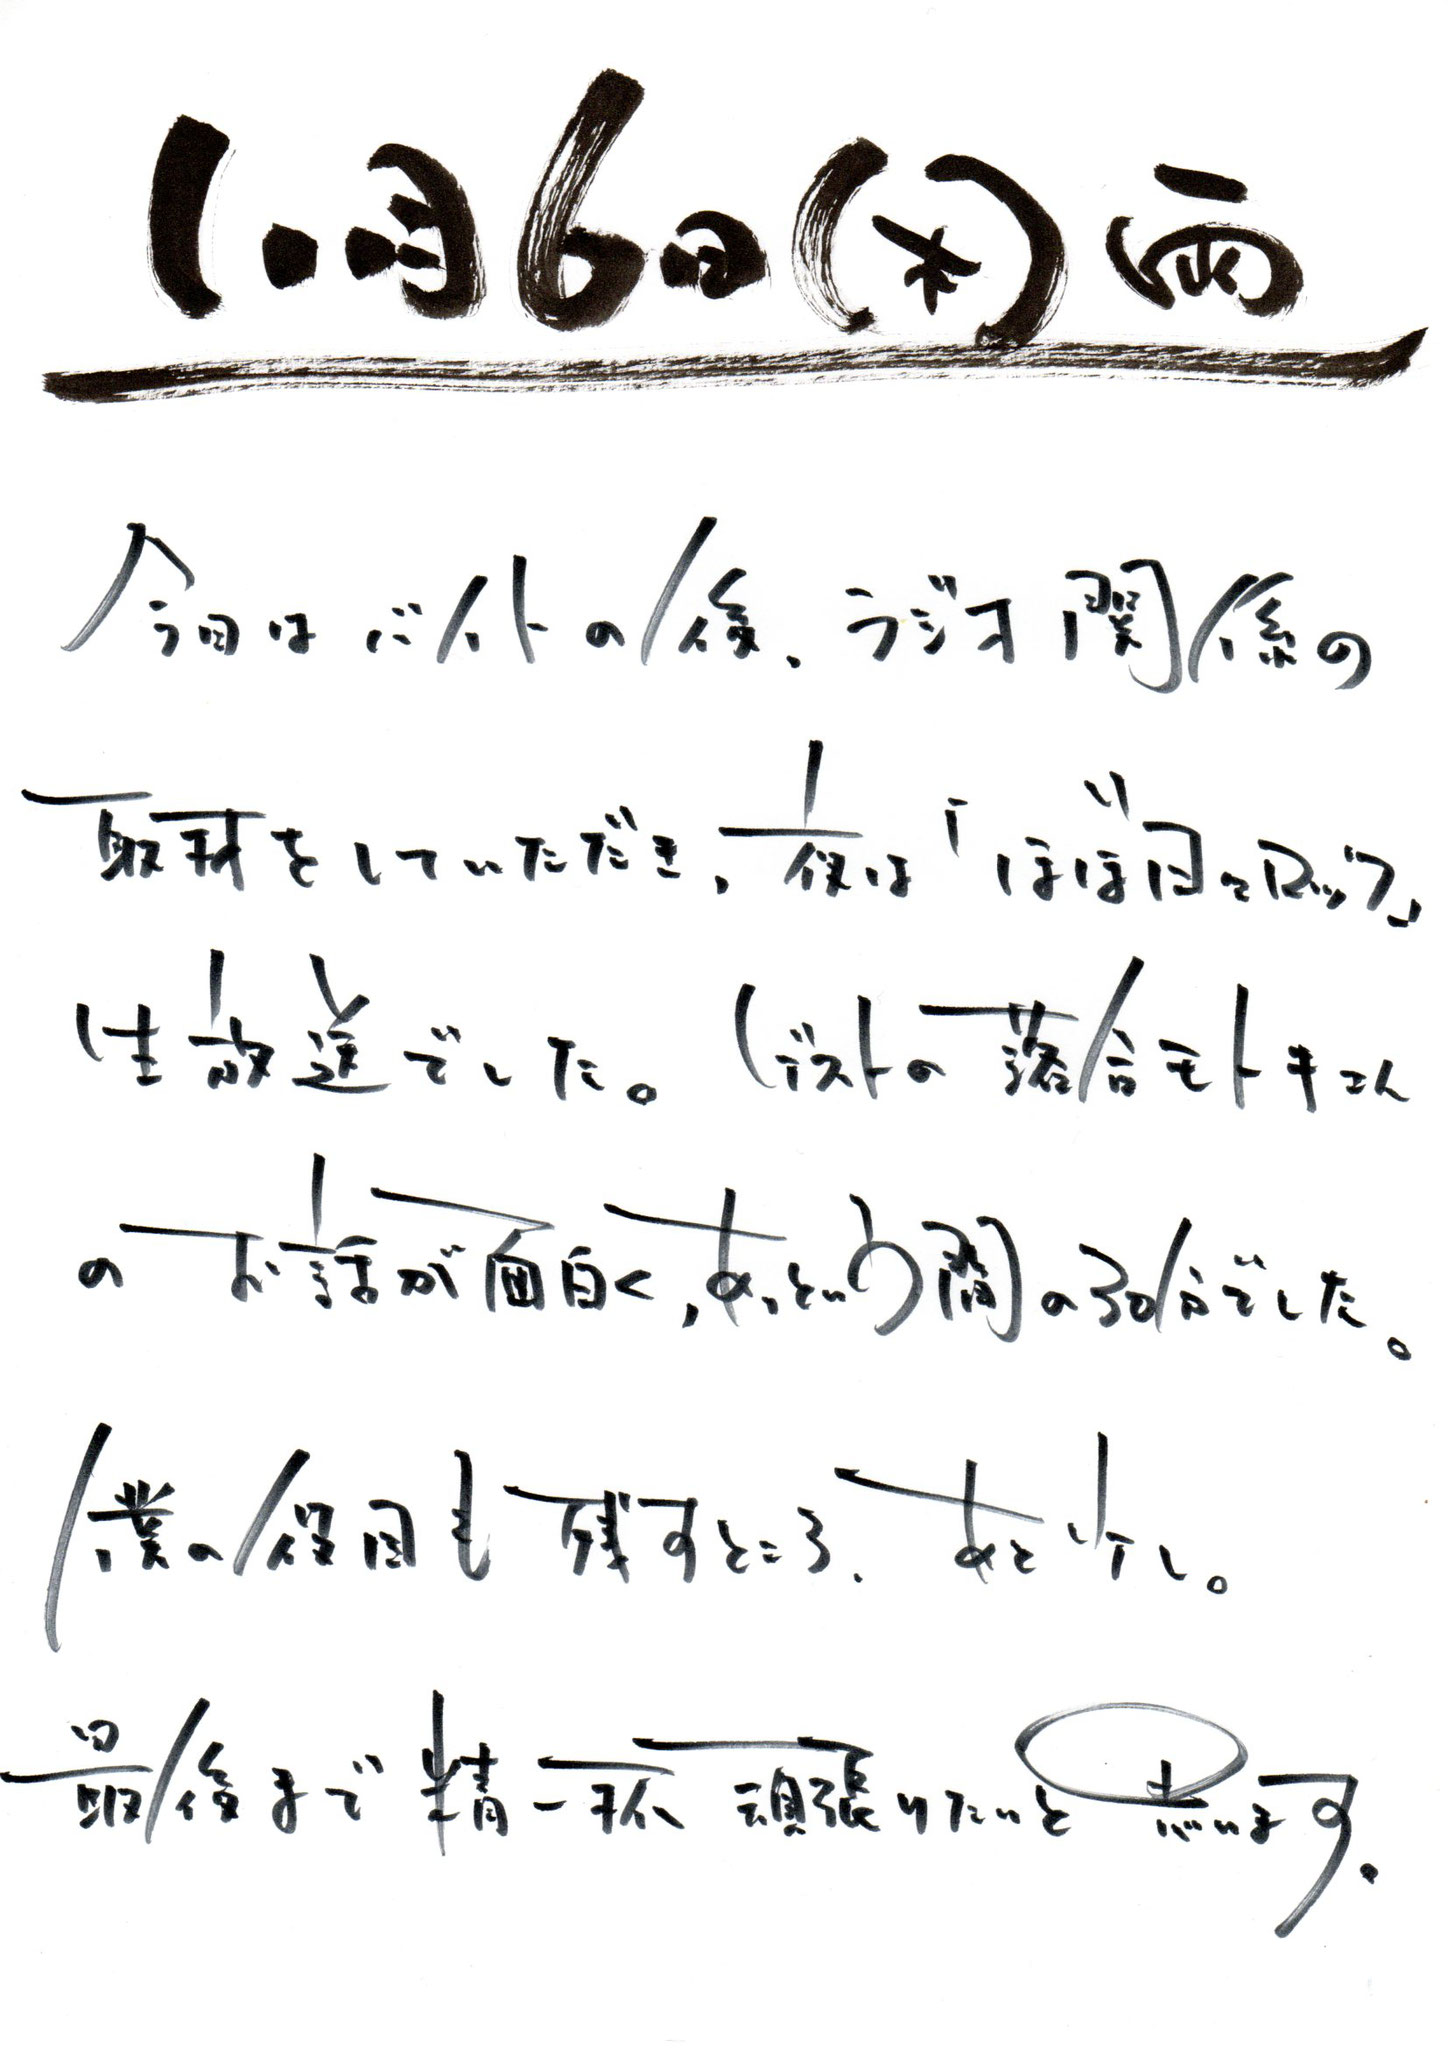 10月6日(木) 雨
今日はバイトの後、ラジオ関係の
取材をしていただき、夜は「ほぼ
生放送でした。ゲストの落合モトキさん
のお話が面白く、あっという間の30分でした。
僕の役目も残すところ、あと少し。
最後まで精一杯頑張りたいと思います。